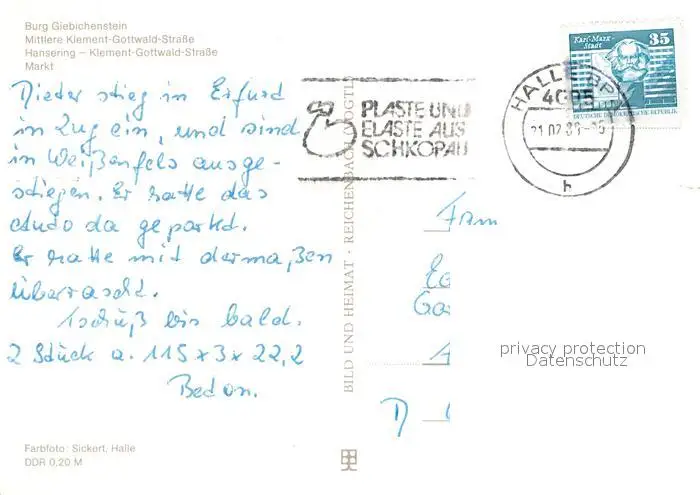 Burg Giebichenstein
Mittlere Klement-Gottwald-Straße
Hansering – Klement-Gottwald-Straße
Markt
Dieter stieg in Erfurd
in Zug ein, und sind
in Weißenfels ausge-
stiegen. Er hatte das
Audo da geparkt.
Er hatte mit dermaßen
überrascht.
Tschüß bis bald.
2 Stück a. 115 x 3 x 22,2
Beton.
Farbfoto: Sickert, Halle
DDR 0,20 M
BILD UND HEIMAT · REICHENBACH (VOGTL
PLASTE UND
ELASTE AUS
SCHKOPAU
HALLE BPA
4005
21.02.86
h
Karl-Marx-
Stadt
35
DEUTSCHE DEMOKRATISCHE REPUBLIK
Fam
D
privacy protection
Datenschutz